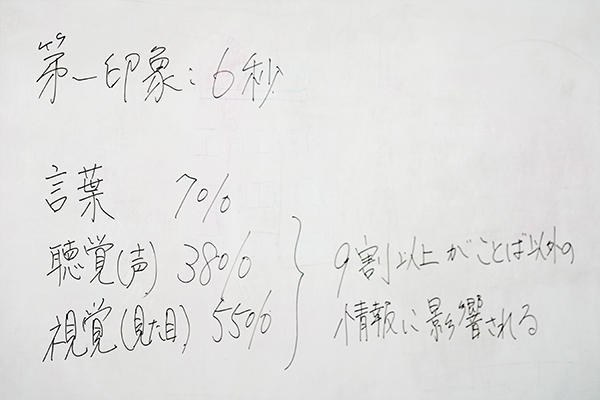 第一印象: 6秒
言葉 7%
聴覚(声) 38%
視覚(見た目) 55%
9割以上がことば以外の
情報に影響される